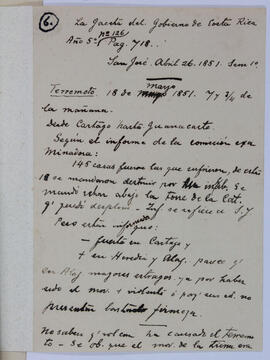 6.
La Gaceta del Gobierno de Costa Rica
Año 5º nº 126 Pag. 718.
San José. Abril 26. 1851. Sem 1º
marzo
Terremoto. 18 de 1851. 7 y 3/4 de
la mañana.
Desde Cartago hasta Guanacaste.
Según el informe de la comisión exa
minadora:
145 casas fueron las que sufrieron, de estas
18 se mandaron destruir por inhab. Se
mandó echar abajo la Torre de la Cat.
q' quedó
Pero estos
— fuerte en Cartago y
+ en Heredia y Alaj. parece q'
en Alaj mayores estragos ya por haber
sido el mov. + violento ó porq' sus ed. no
presentan bastante firmeza.
No saben q' ha causado el terremo
to. — Se ob. que el mov. de la tierra era